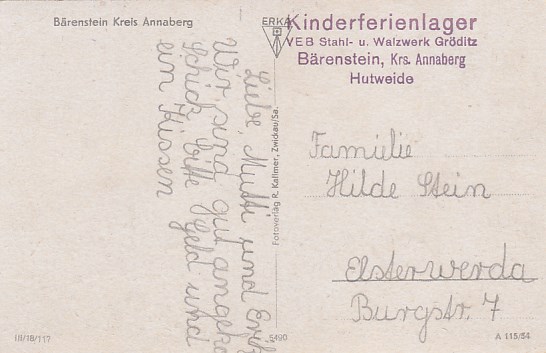 Bärenstein Kreis Annaberg
ERKA
Kinderferienlager
VEB Stahl- u. Walzwerk Gröditz
Bärenstein, Krs. Annaberg
Hutweide
Liebe Mutti und
Wir sind gut
Schick bitte Geld und
ein Kissen
Fotoverlag R. Kallmer, Zwickau/Sa.
Familie
Hilde Stein
Elsterwerda
Burgstr. 7
III/18/117
5490
A 115/54